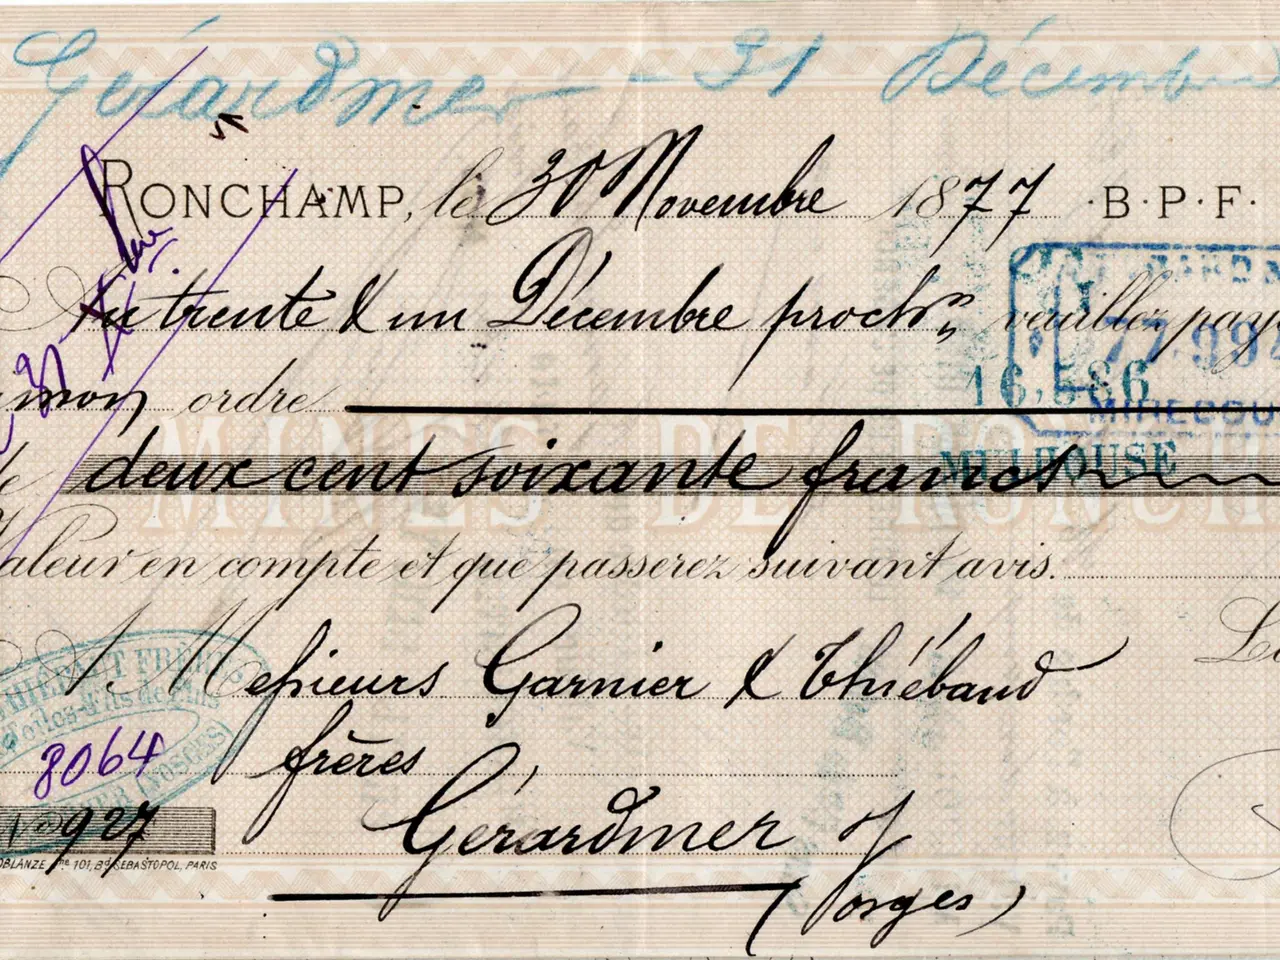 Gérardmer - 31 Décembre
RONCHAMP, le 30 Novembre 1877 B.P.F.
Au trente & un Décembre proch veuillez pay
mon ordre
deux cent soixante francs
MINES DE RONCH
Valeur en compte et que passerez suivant avis.
A Messieurs Garnier & Thiébaud
frères
Gérardmer
(Vosges)
16,586
MULHOUSE
MIRECOU
FRÈRE
(VOSGES)
8064
927
101, Bd SÉBASTOPOL, PARIS